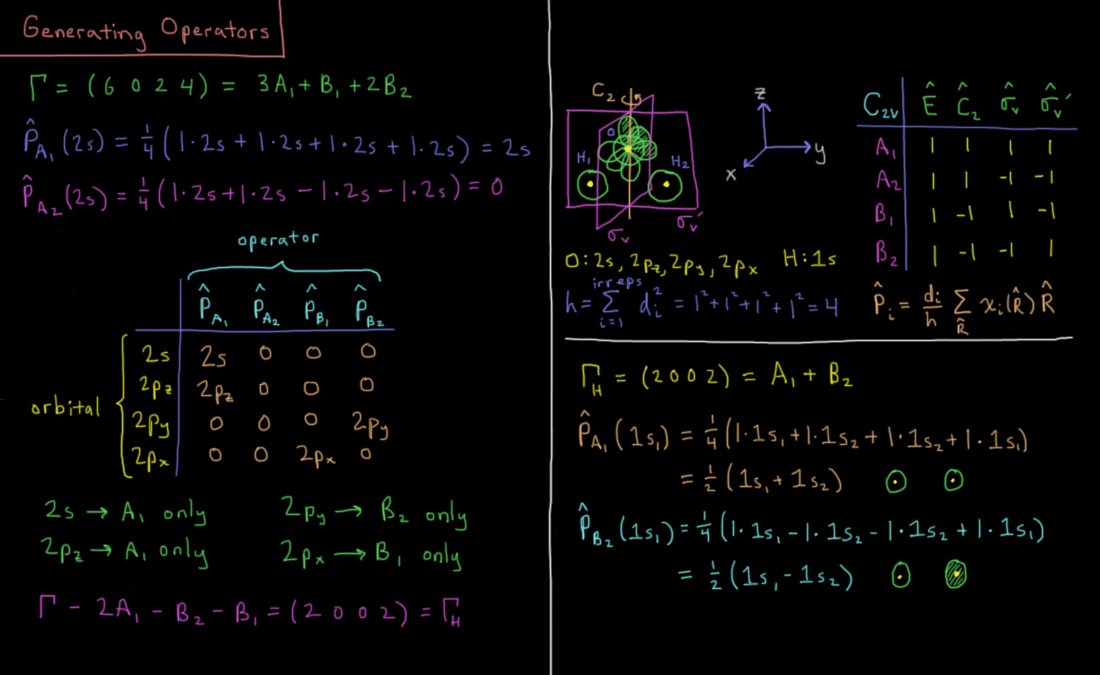 Generating Operators
Γ = (6 0 2 4) = 3A₁ + B₁ + 2B₂
P̂_A₁ (2s) = ¼ (1·2s + 1·2s + 1·2s + 1·2s) = 2s
P̂_A₂ (2s) = ¼ (1·2s + 1·2s − 1·2s − 1·2s) = 0
operator
P̂_A₁ P̂_A₂ P̂_B₁ P̂_B₂
orbital
2s 2s 0 0 0
2p_z 2p_z 0 0 0
2p_y 0 0 0 2p_y
2p_x 0 0 2p_x 0
2s → A₁ only 2p_y → B₂ only
2p_z → A₁ only 2p_x → B₁ only
Γ − 2A₁ − B₂ − B₁ = (2 0 0 2) = Γ_H
C₂
O
H₁ H₂
σ_v σ_v′
z
y
x
C₂ᵥ Ê Ĉ₂ σ̂_v σ̂_v′
A₁ 1 1 1 1
A₂ 1 1 -1 -1
B₁ 1 -1 1 -1
B₂ 1 -1 -1 1
O: 2s, 2p_z, 2p_y, 2p_x H: 1s
h = Σ_{i=1}^{irreps} d_i² = 1² + 1² + 1² + 1² = 4
P̂_i = d_i/h Σ_R̂ χ_i(R̂) R̂
Γ_H = (2 0 0 2) = A₁ + B₂
P̂_A₁ (1s₁) = ¼ (1·1s₁ + 1·1s₂ + 1·1s₂ + 1·1s₁)
= ½ (1s₁ + 1s₂)
P̂_B₂ (1s₁) = ¼ (1·1s₁ − 1·1s₂ − 1·1s₂ + 1·1s₁)
= ½ (1s₁ − 1s₂)